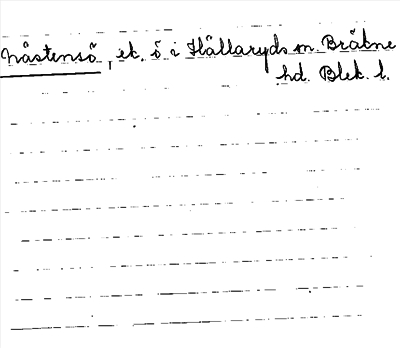 Nåstensö, ek. ö i Hällaryds sn. Bräkne
hd. Blek. l.